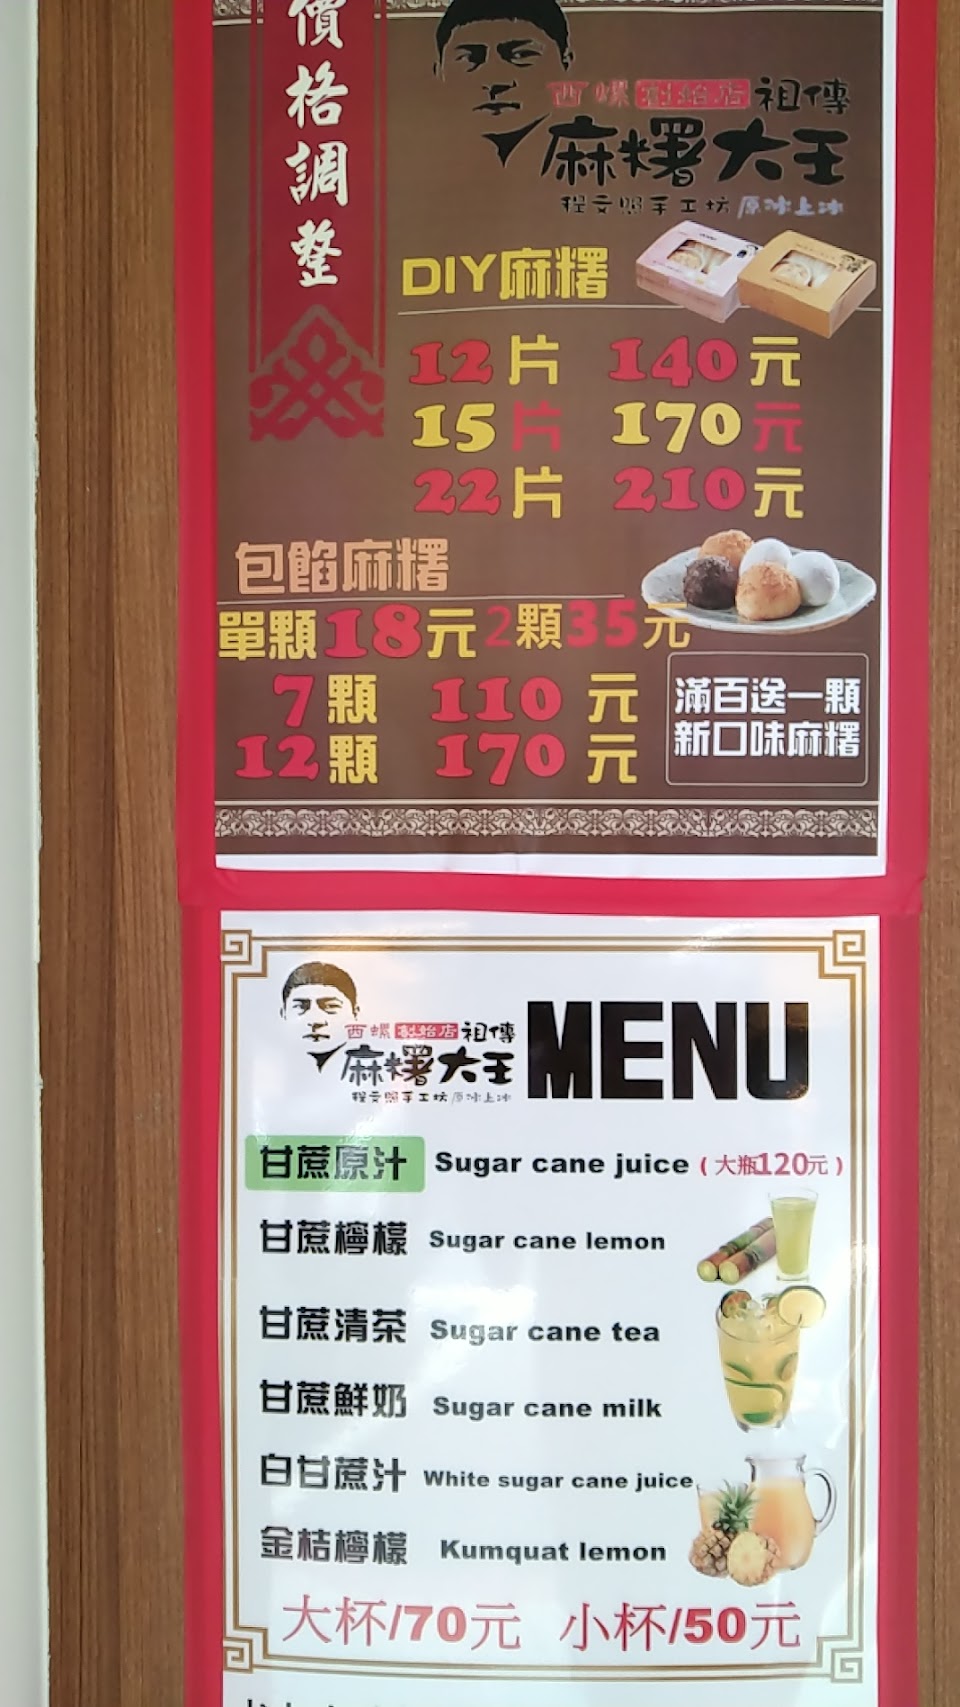 價格調整
西螺 創始店 祖傳
麻糬大王
程文照手工坊 原冰上冰
DIY麻糬
12片 140元
15片 170元
22片 210元
包餡麻糬
單顆18元 2顆35元
7顆 110元
12顆 170元
滿百送一顆
新口味麻糬
西螺 創始店 祖傳
麻糬大王
程文照手工坊 原冰上冰
MENU
甘蔗原汁 Sugar cane juice (大瓶120元)
甘蔗檸檬 Sugar cane lemon
甘蔗清茶 Sugar cane tea
甘蔗鮮奶 Sugar cane milk
白甘蔗汁 White sugar cane juice
金桔檸檬 Kumquat lemon
大杯/70元 小杯/50元